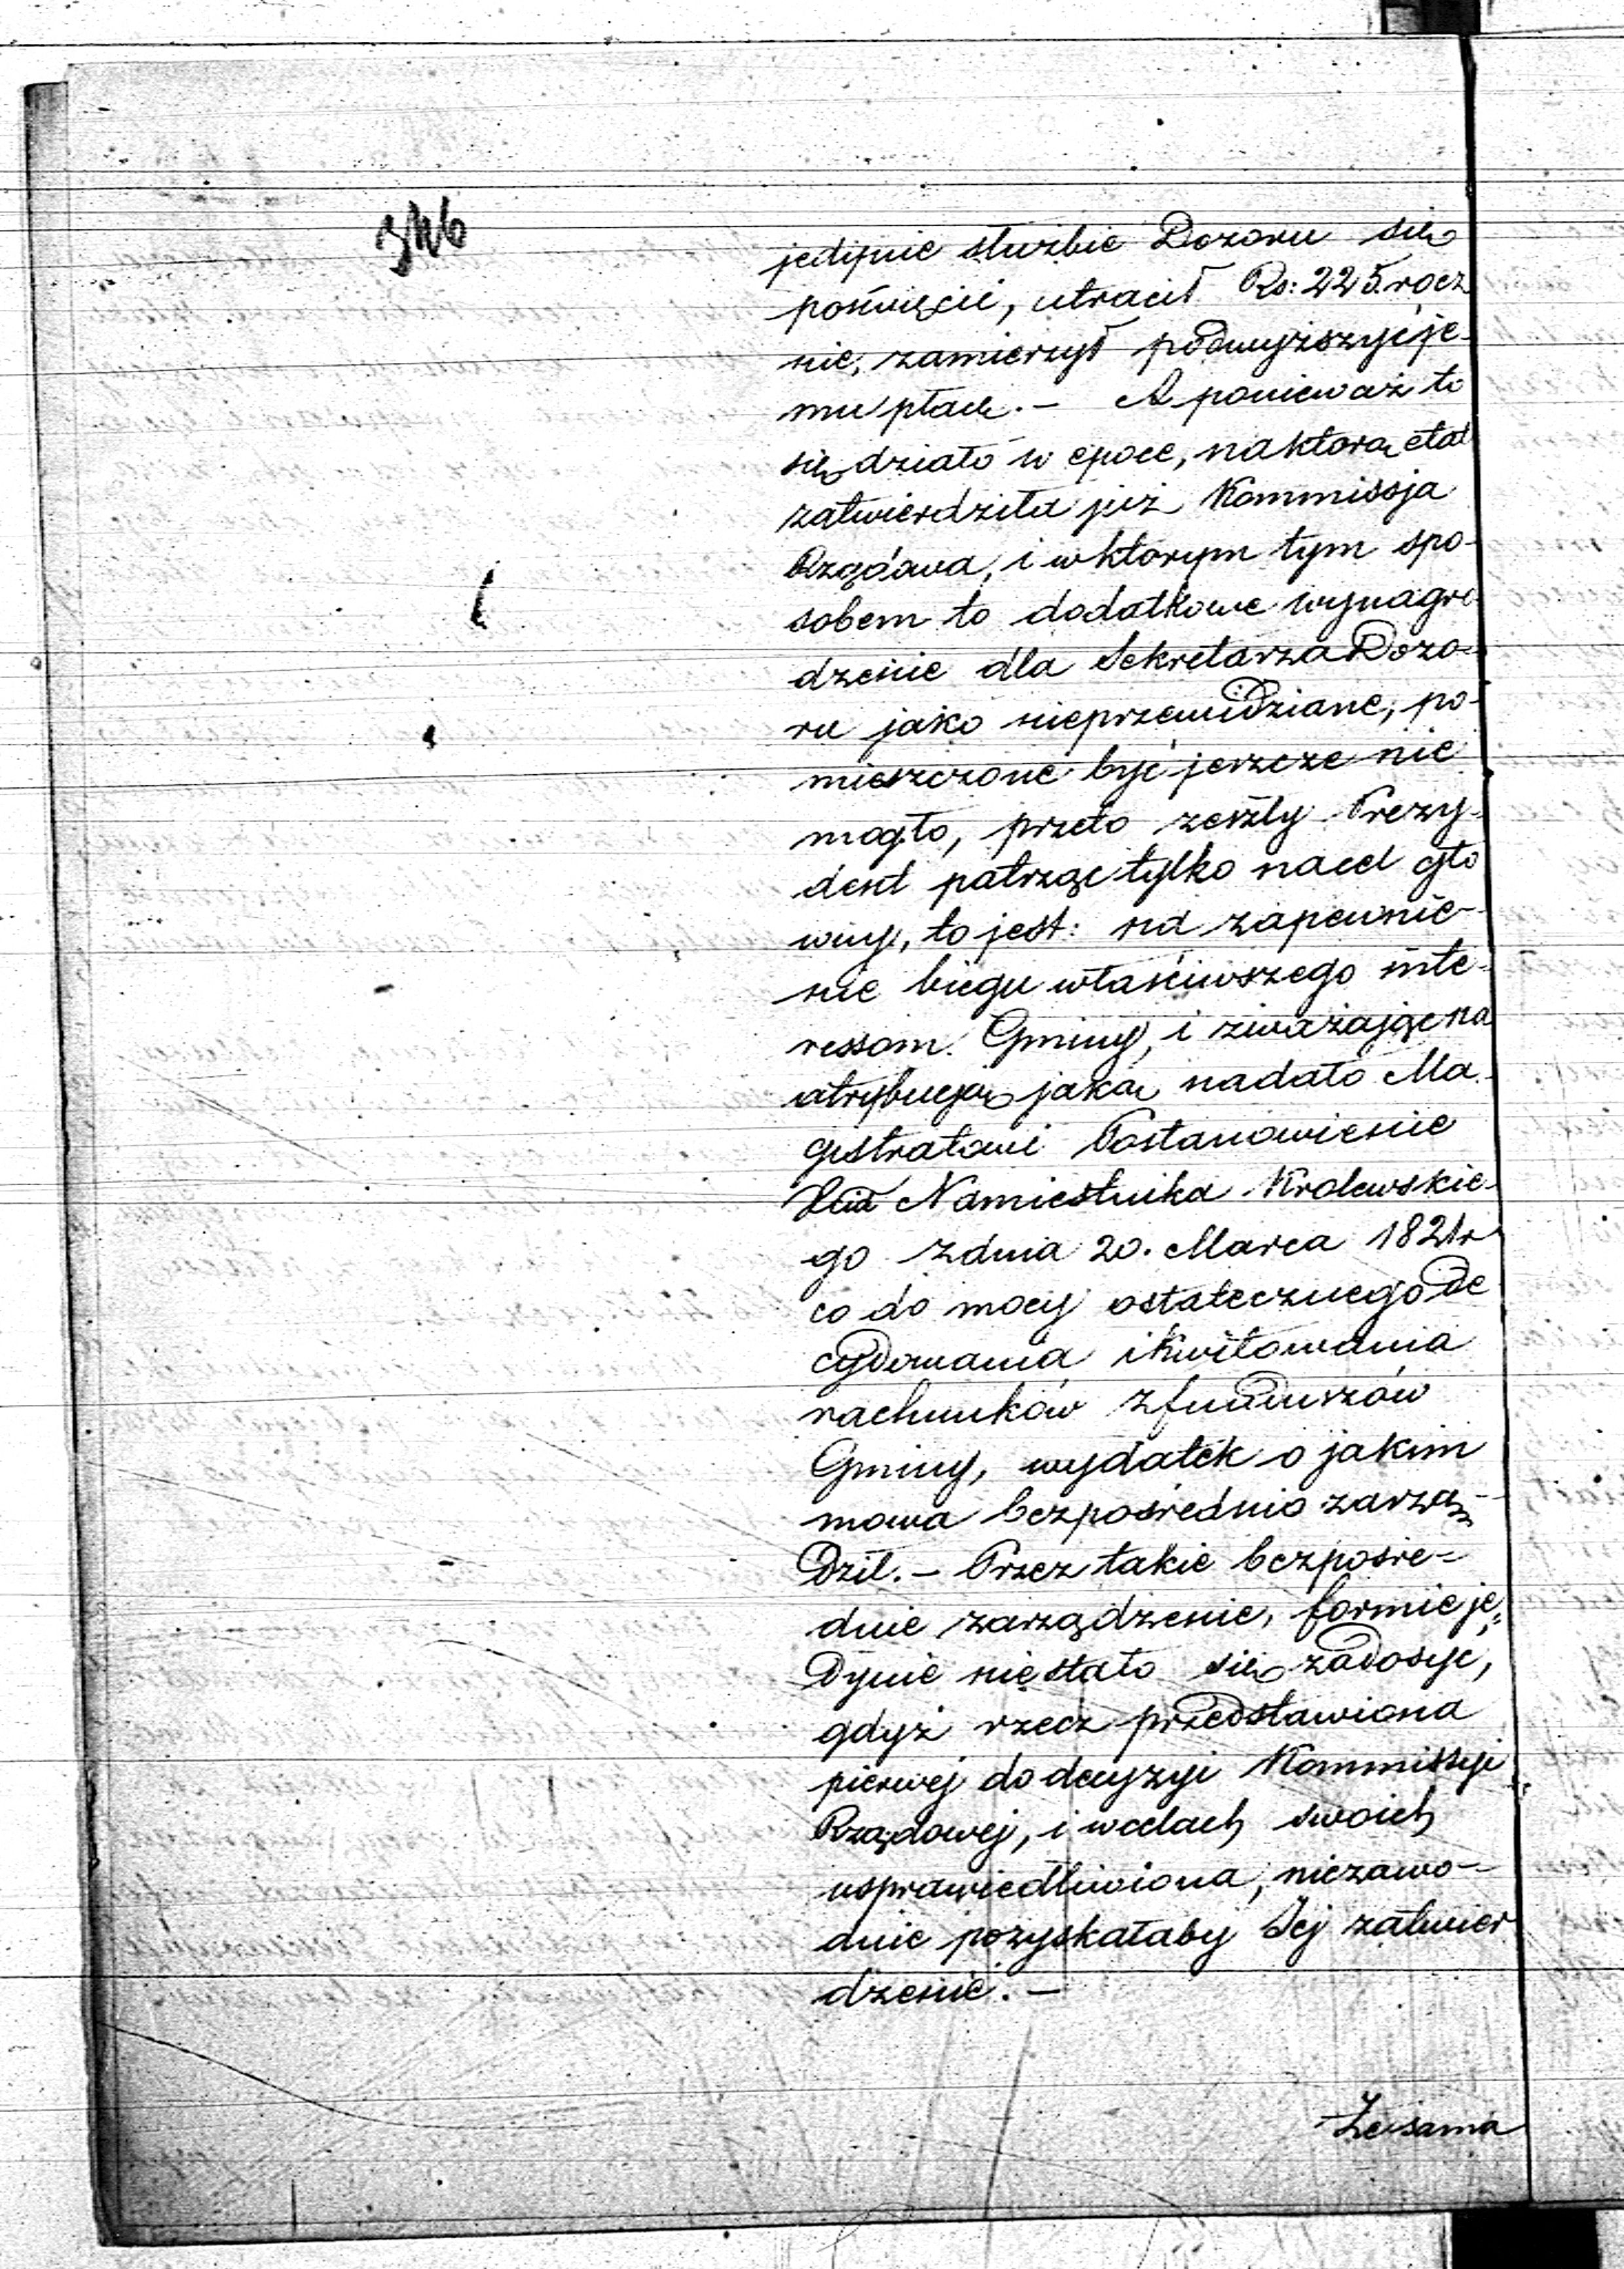 346
jedynie służbie Dozoru się
poświęcić, utracił Rs: 225. rocz
nie, zamierzył podwyższyć je-
mu płacę. — A ponieważ to
się działo w epoce, na którą etat
zatwierdziła już Kommissja
Rządowa, i w ktorym tym spo-
sobem to dodatkowe wynagro-
dzenie dla Sekretarza Dozo-
ru jako nieprzewidziane, po-
mieszczone być jeszcze nie
mogło, przeto zeszły Prezy-
dent patrząc tylko na cel głó
wny, to jest: na zapewnie-
nie biegu właściwszego inte-
ressom Gminy, i zważając na
atrybucją jaką nadało Ma-
gistratowi Postanowienie
Xcia Namiestnika Krolewskie-
go z dnia 20. Marca 1821 r
co do mocy ostatecznego de
cydowania i kwitowania
rachunków z funduszów
Gminy, wydatek o jakim
mowa bezpośrednio zarzą-
dził. — Przez takie bezpośre-
dnie zarządzenie, formie je-
dynie nie stało się zadosyć,
gdyż rzecz przedstawiona
pierwej do decyzyi Kommissyi
Rządowej, i w celach swoich
usprawiedliwiona, niezawo-
dnie pozyskałaby Jej zatwier
dzenie. —
Że sama